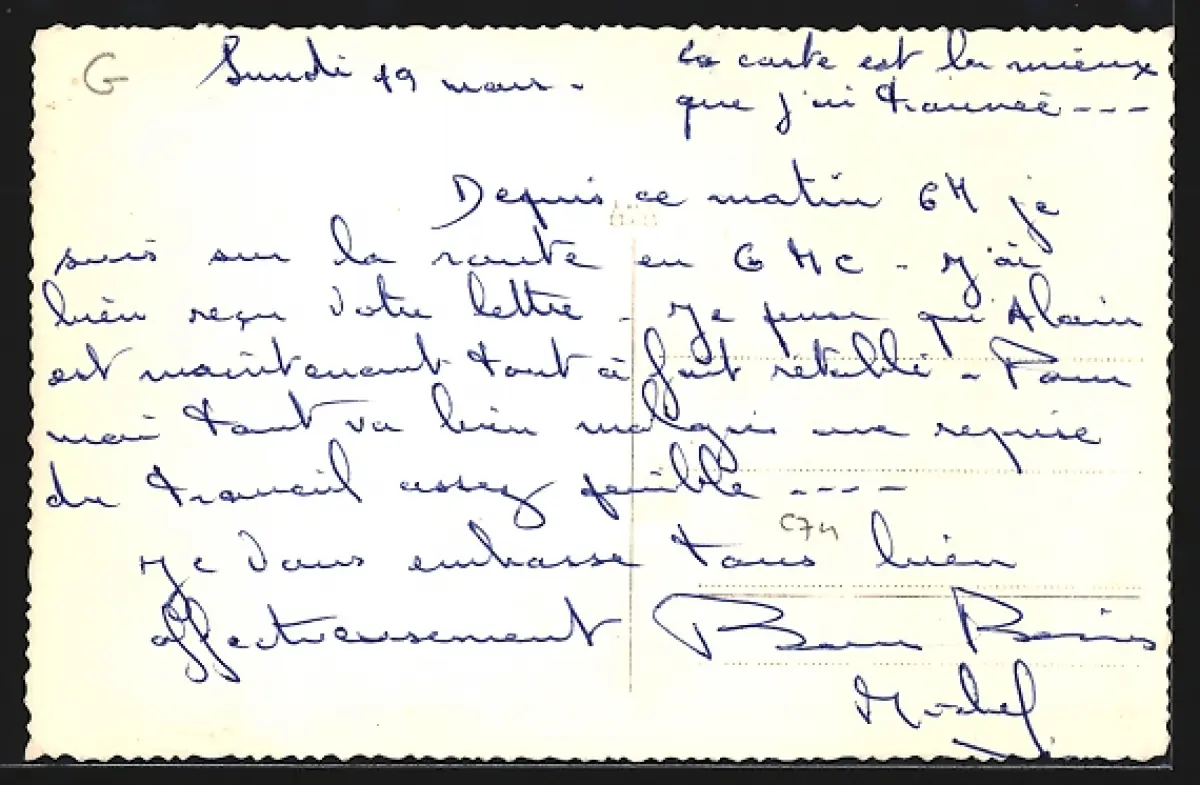 G
Lundi 19 mars.
La carte est la mieux
que j'ai trouvée ----
Depuis ce matin 6H je
suis sur la route en GMC - J'ai
bien reçu votre lettre - Je pense qu'Alain
est maintenant tout à fait rétabli - Pour
moi tout va bien malgré une reprise
du travail assez pénible ----
C74
Je vous embrasse tous bien
affectueusement Bons Baisers
Michel